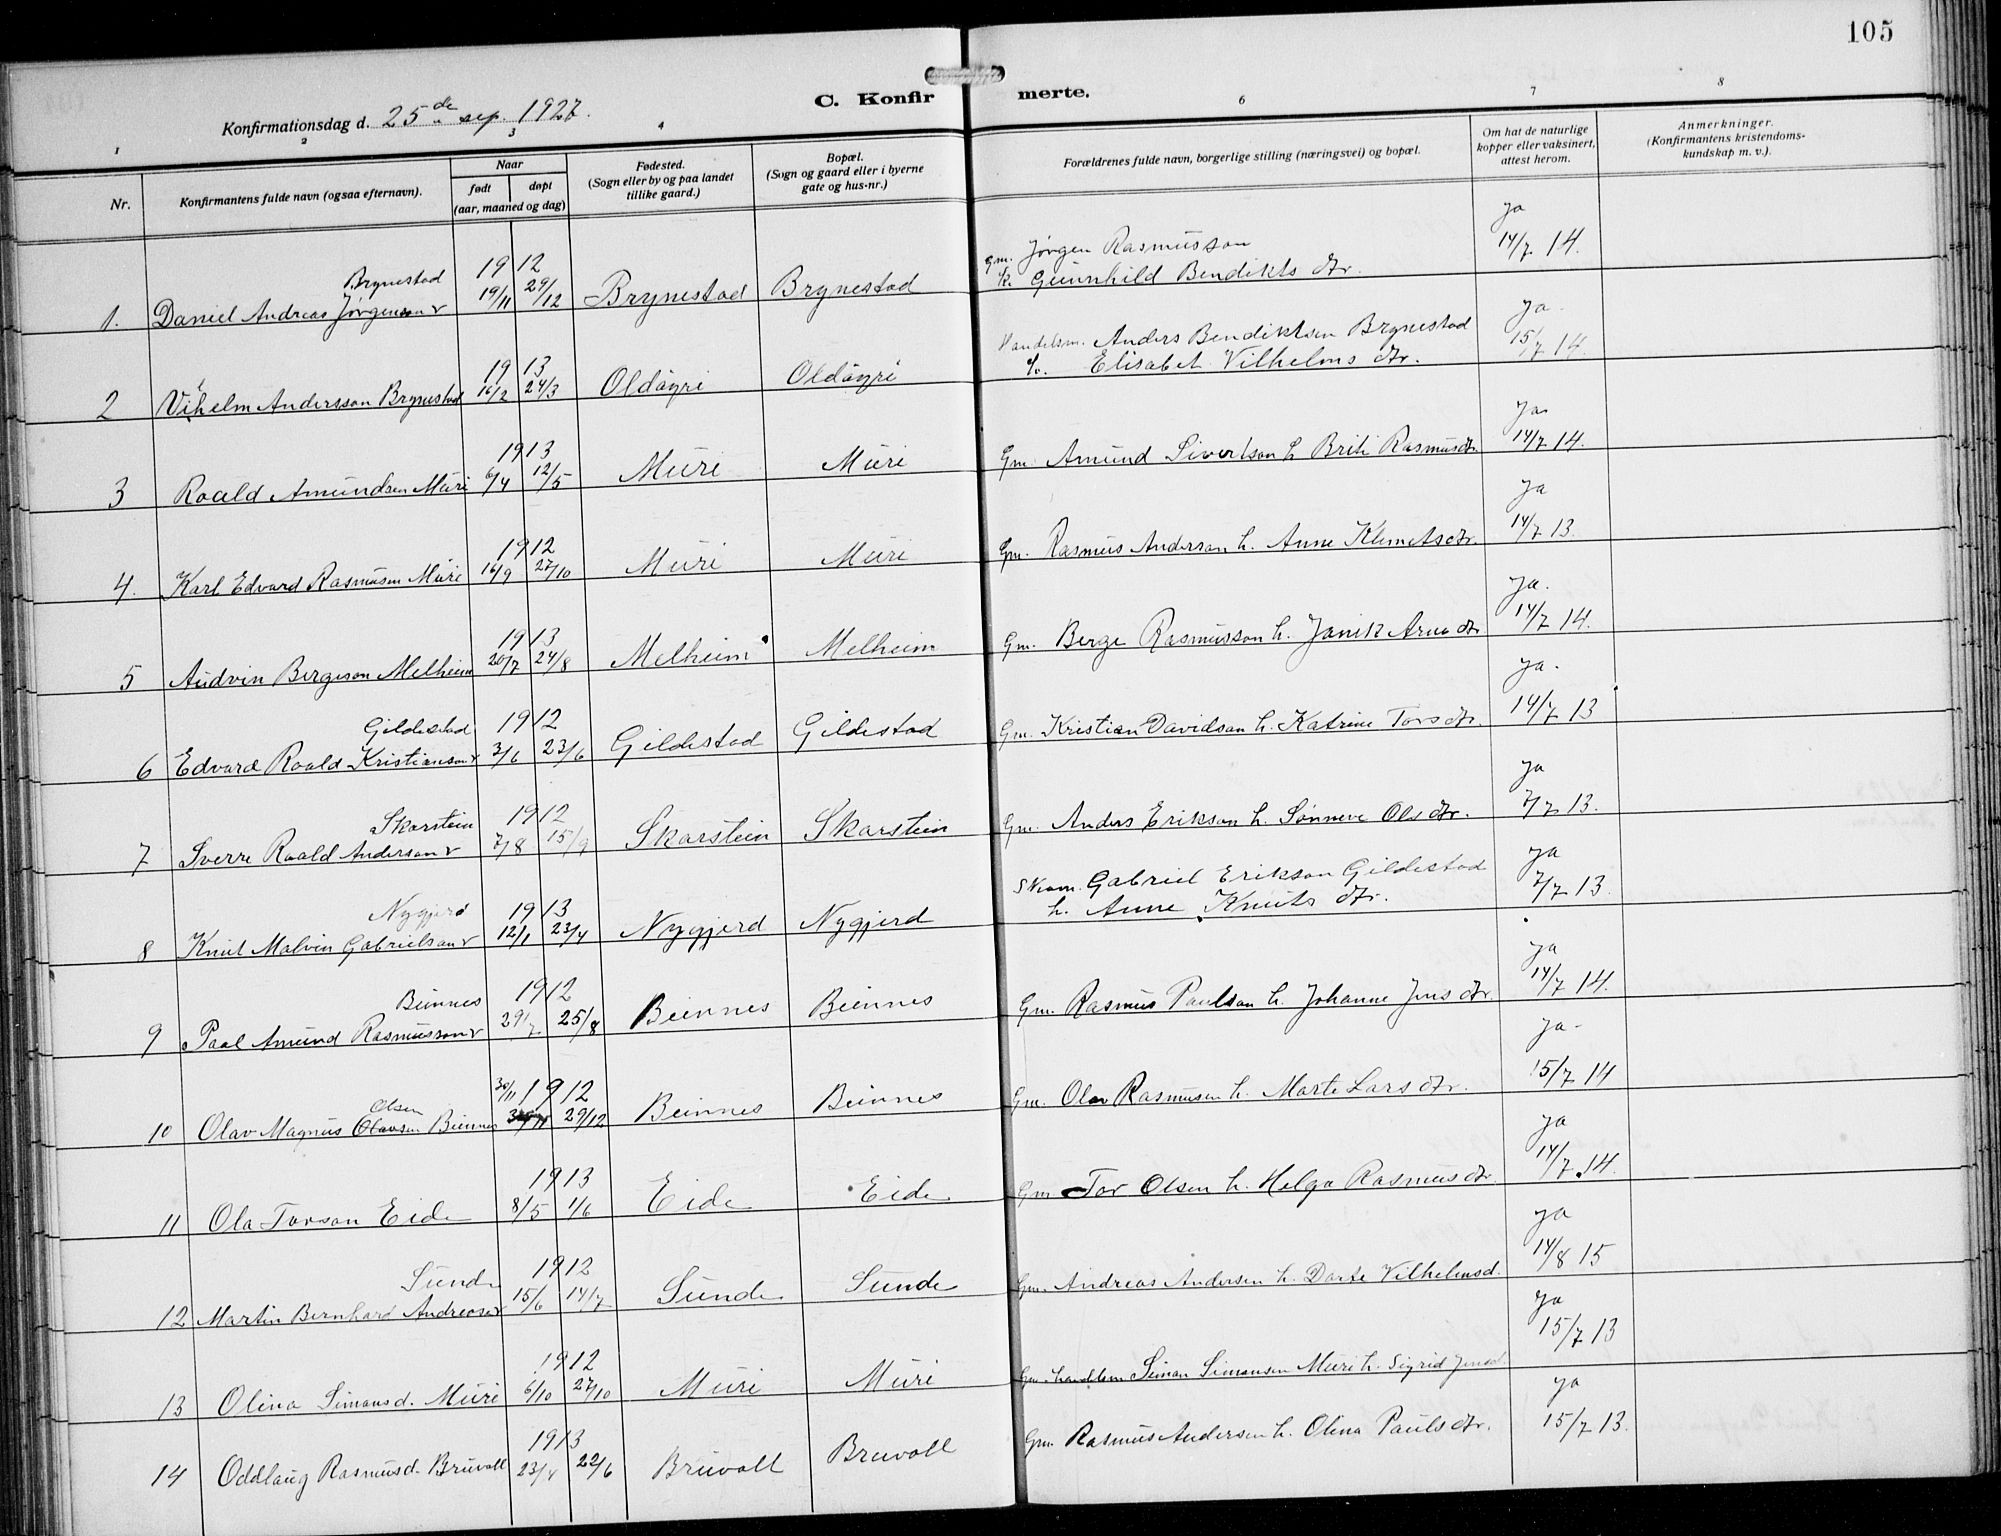 105
C. Konfirmerte.
Konfirmationsdag d. 25de sep. 1927.
1 2 3 4 6 7 8
Nr.
Konfirmantens fulde navn (ogsaa efternavn).
Naar
født døpt
(aar, maaned og dag)
Fødested.
(Sogn eller by og paa landet
tillike gaard.)
Bopæl.
(Sogn og gaard eller i byerne
gate og hus-nr.)
Forældrenes fulde navn, borgerlige stilling (næringsvei) og bopæl.
Om hat de naturlige
kopper eller vaksinert,
attest herom.
Anmerkninger.
(Konfirmantens kristendoms-
kundskap m. v.).
Brynestad 19 12 Gm. Jørgen Rasmusson ja
1. Daniel Andreas Jørgenson 19/11 29/12 Brynestad Brynestad k. Gunnhild Bendikts dtr. 14/7 14.
19 13 Handelsm. Anders Bendiktsen Brynestad ja.
2 Vilhelm Andersson Brynestad 16/2 24/3 Oldøyri Oldøyri Elisabet Vilhelms dtr. 15/7 14.
1913 ja
3 Roald Amundsen Muri 6/4 12/5 Muri Muri Gm. Amund Sivertson h. Brite Rasmusdtr. 14/7 14.
1912 ja
4. Karl Edvard Rasmusen Muri 16/9 27/10 Muri Muri Gm. Rasmus Anderson h. Anne Klimetsdtr. 14/7 13.
1913 ja.
5 Audvin Bergeson Melheim 20/7 24/8 Melheim Melheim Gm. Berge Rasmusson h. Janik Arne dtr 14/7 14.
Gildestad 1912 ja.
6 Edvard Roald Kristianson 3/6 23/6 Gildestad Gildestad Gm. Kristian Davidson h. Katrine Tors dtr 14/7 13
Skarstein 1912 ja
7 Sverre Roald Anderson 7/8 15/9 Skarstein Skarstein Gm. Anders Erikson h. Sønneve Ols dtr. 7/7 13.
Nygjerd 1913 Skom. Gabriel Erikson Gildestad ja
8 Knut Malvin Gabrielson 12/1 23/4 Nygjerd Nygjerd h. Anne Knuts dtr. 7/7 13.
Beinnes 1912 ja
9 Paal Amund Rasmusson 29/7 25/8 Beinnes Beinnes Gm. Rasmus Paulson h. Johanne Jens dtr. 14/7 14.
Olsen 30/11 1912 ja-
10 Olav Magnus Olavsen Beinnes 29/12 Beinnes Beinnes Gm. Olav Rasmusen h. Marte Lars dtr. 15/7 14
1913 ja
11 Ola Torson Eide 8/5 1/6 Eide Eide Gm Tor Olsen h. Helga Rasmus dtr. 14/7 14.
Sunde 1912 ja
12 Martin Bernhard Andreasen 15/6 14/7 Sunde Sunde Gm. Andreas Andersen h. Darte Vilhelmsd. 14/8 15
1912 ja
13 Olina Simonsd. Muri 6/10 27/10 Muri Muri Gm. Simon Simonsen Muri h. Sigrid Jensd. 15/7 13
1913 ja
14 Oddlaug Rasmusd. Bruvoll 23/4 22/6 Bruvoll Bruvoll Gm. Rasmus Andersen h. Olina Pauls dtr. 15/7 13.